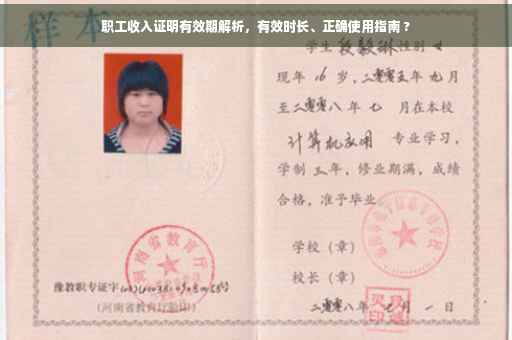 职工收入证明有效期解析，有效时长、正确使用指南？
样本
学生段毅琳性别女
现年16岁，二零零五年九月
至二零零八年七月在本校
计算机应用 专业学习，
学制三年，修业期满，成绩
合格，准予毕业
学校（章）
校长（章）
二零零八年 月一日
豫教职专证字
（河南省教育厅验印）
河南省教育厅